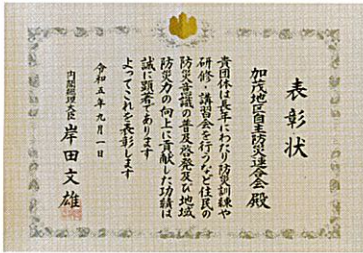 表彰状
加茂地区自主防災連合会 殿
貴団体は長年にわたり防災訓練や
研修・講習会を行うなど住民の
防災意識の普及啓発及び地域
防災力の向上に貢献した功績は
誠に顕著であります
よってこれを表彰します
令和五年九月一日
内閣総理大臣 岸田文雄